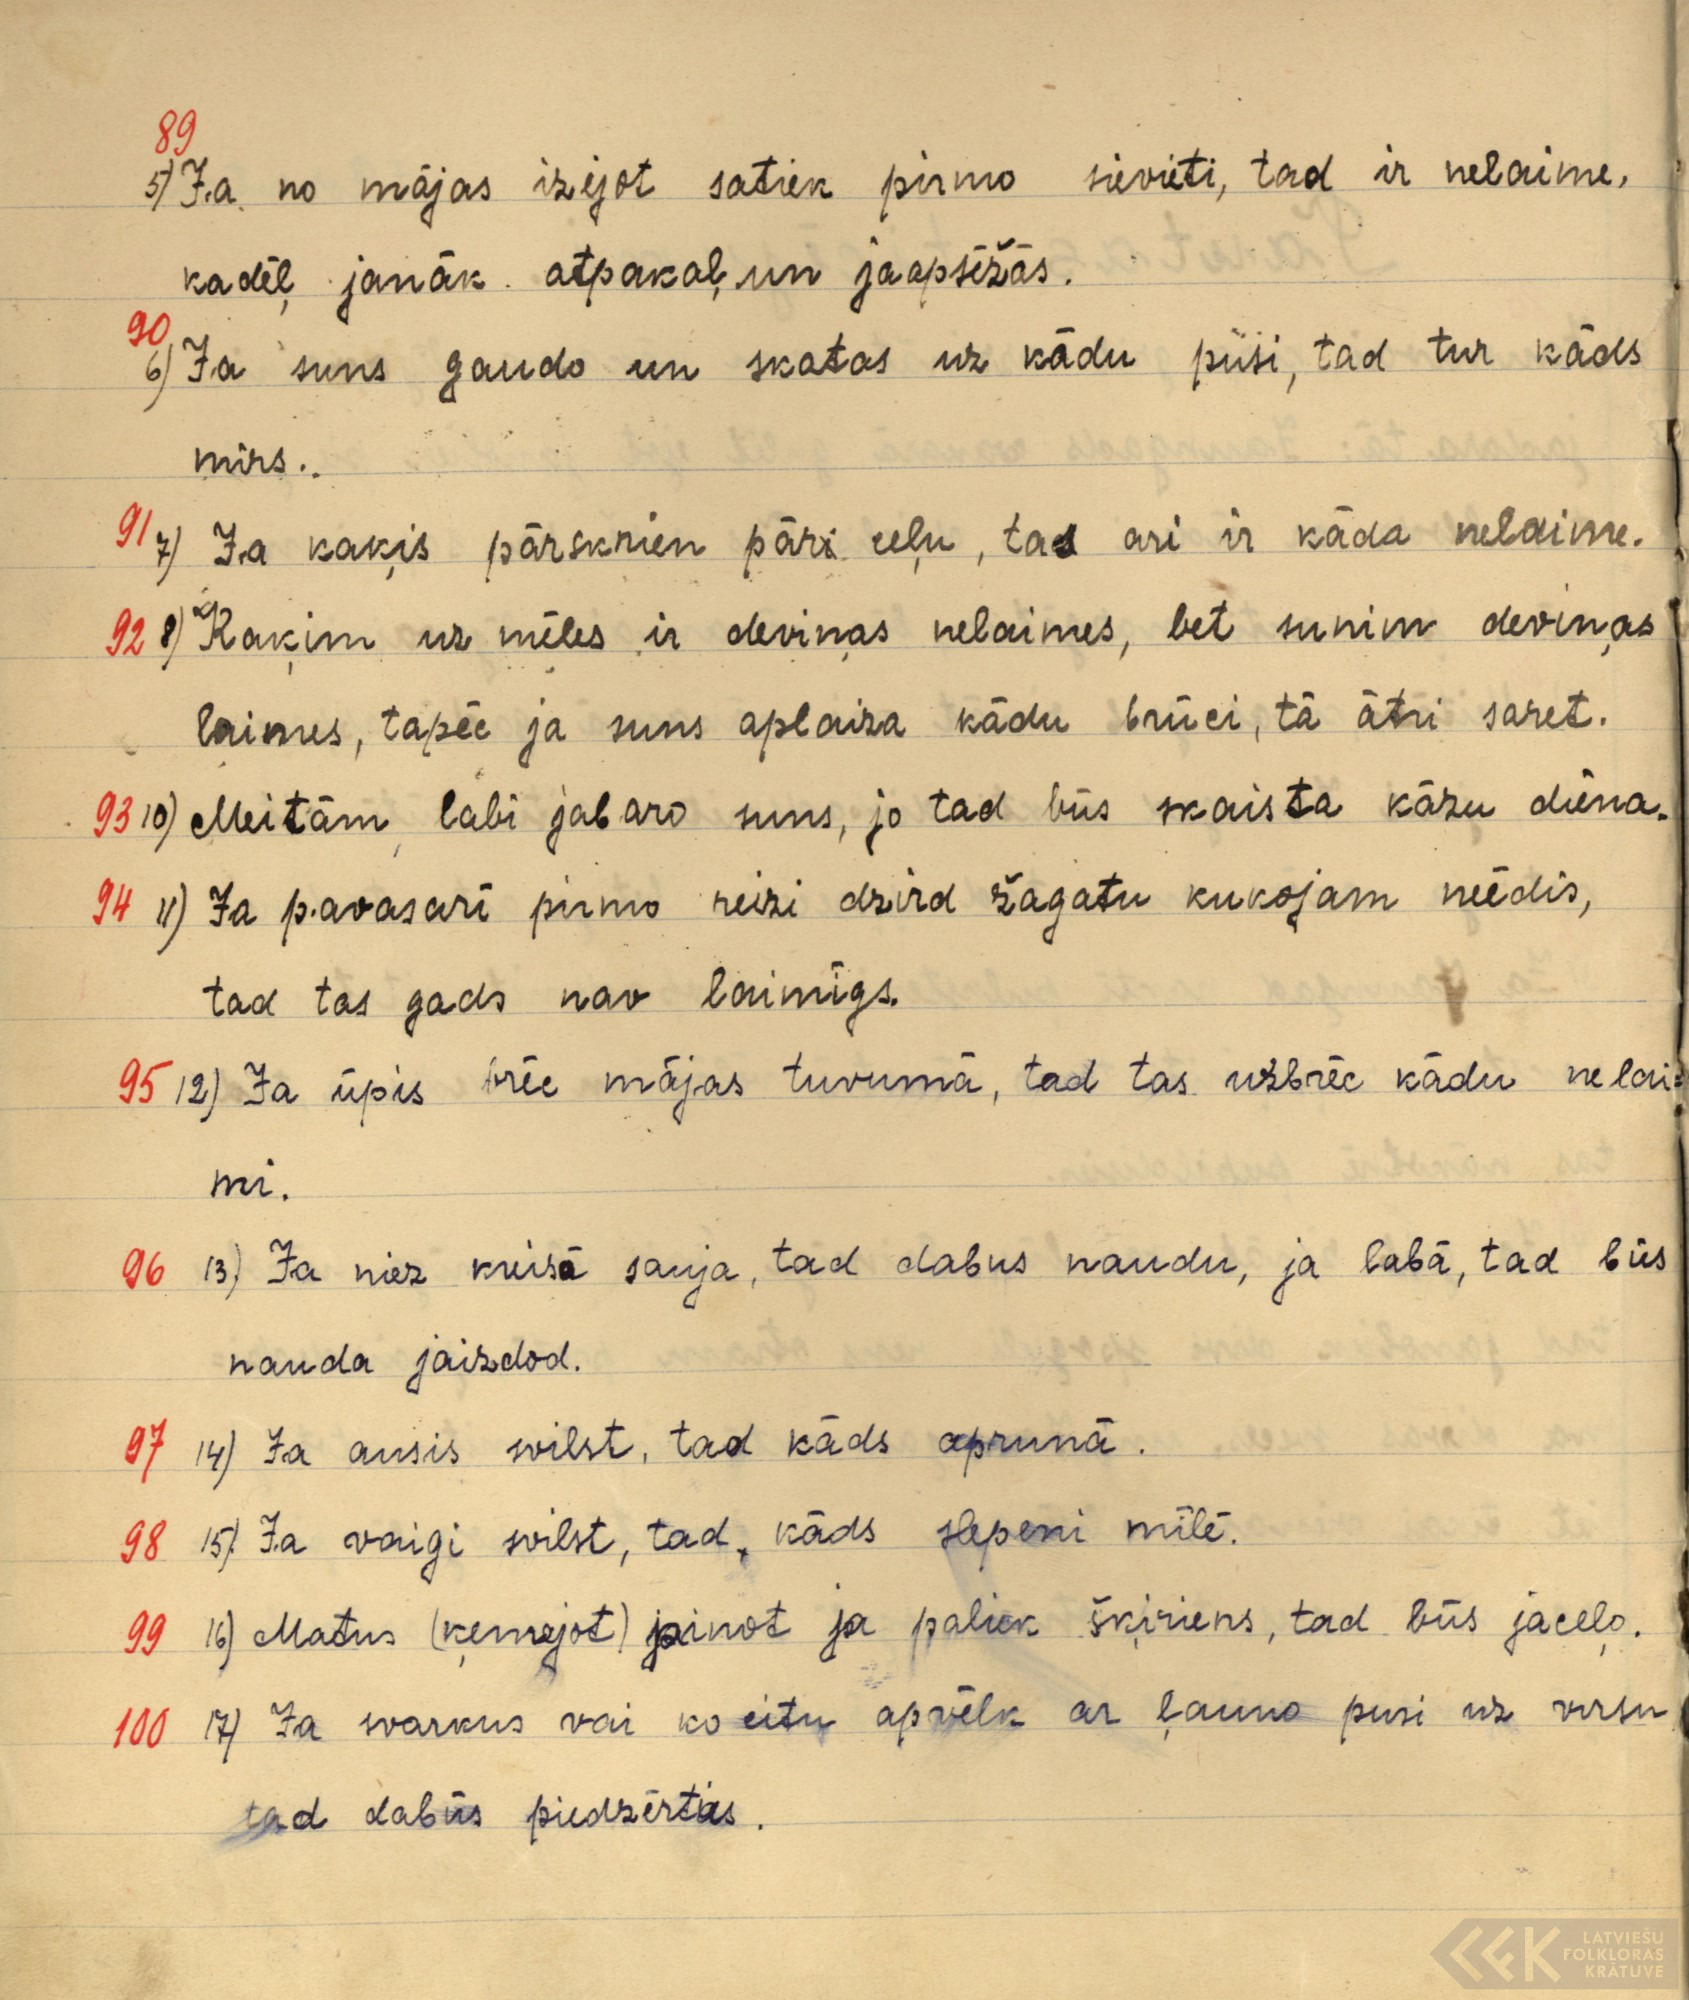 89
5) Ja no mājas izejot satiek pirmo sievieti, tad ir nelaime,
kadēļ janāk atpakaļ un jaapsēžās.
90
6) Ja suns gaudo un skatas uz kādu pusi, tad tur kāds
mirs.
91 7) Ja kaķis pārskrien pāri ceļu, tas ari ir kāda nelaime.
92 8) Kaķim uz mēles ir deviņas nelaimes, bet sunim deviņas
laimes, tapēc ja suns aplaiza kādu brūci, tā ātri saret.
93 10) Meitām labi jabaro suns, jo tad būs skaista kāzu diena.
94 11) Ja pavasarī pirmo reizi dzird žagatu kukojam neēdis,
tad tas gads nav laimīgs.
95 12) Ja ūpis brēc mājas tuvumā, tad tas uzbrēc kādu nelai=
mi.
96 13) Ja niez kreisā sauja, tad dabus naudu, ja labā, tad būs
nauda jaizdod.
97 14) Ja ausis svilst, tad kāds aprunā.
98 15) Ja vaigi svilst, tad kāds slepeni mīlē.
99 16) Matus (ķemejot) pinot ja paliek šķiriens, tad būs jaceļo.
100 17) Ja svarkus vai ko citu apvēlk ar ļauno pusi uz virsu
tad dabūs piedzērties.
LATVIEŠU
FOLKLORAS
KRĀTUVE